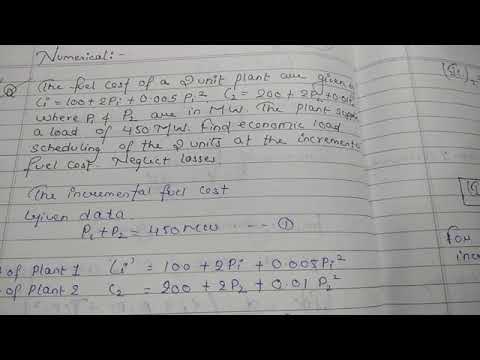 Numerical:-
Q The fuel cost of a 2 unit plant are given
C1 = 100 + 2P1 + 0.005 P1² C2 = 200 + 2P2 + 0.01
where P1 & P2 are in MW. The plant
a load of 450MW. Find economic load
scheduling of the 2 units at the incremental
fuel cost. Neglect losses.
The incremental fuel cost
Given data
P1 + P2 = 450 MW --- ①
of Plant 1 C1 = 100 + 2P1 + 0.005P1²
of Plant 2 C2 = 200 + 2P2 + 0.01 P2²
For